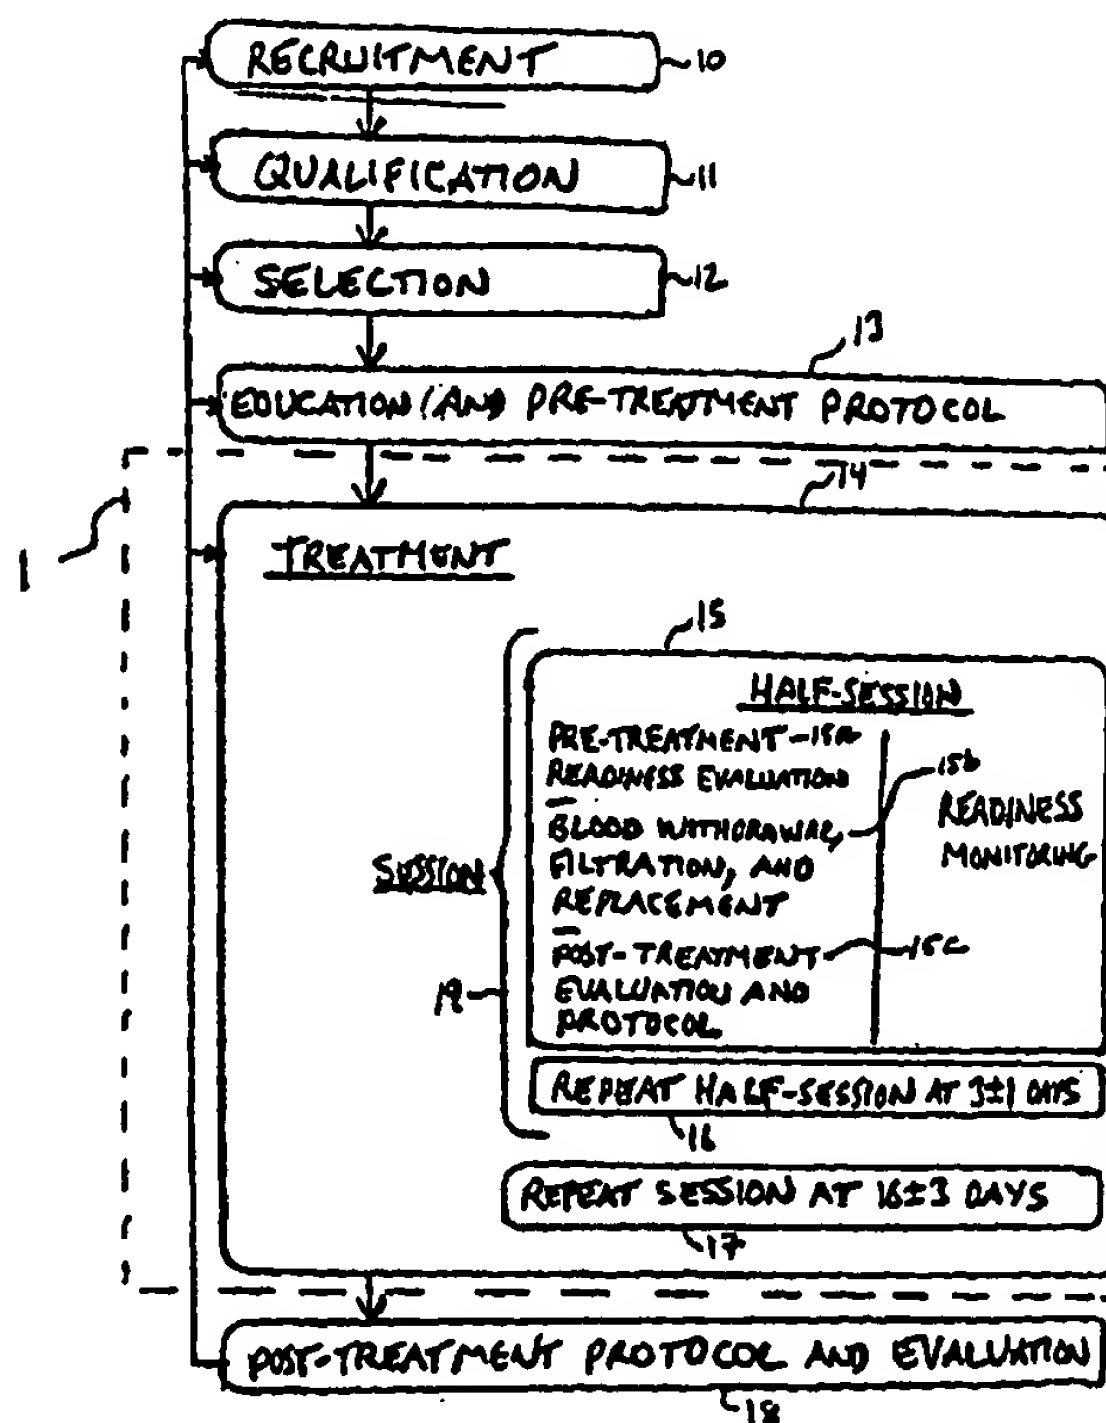 RECRUITMENT
10
QUALIFICATION
11
SELECTION
12
13
EDUCATION (AND PRE-TREATMENT PROTOCOL
14
1
TREATMENT
15
HALF-SESSION
PRE-TREATMENT - 15a
READINESS EVALUATION
15b
BLOOD WITHDRAWAL,
FILTRATION, AND
REPLACEMENT
READINESS
MONITORING
SESSION
POST-TREATMENT
15c
EVALUATION AND
PROTOCOL
19
REPEAT HALF-SESSION AT 3±1 DAYS
16
REPEAT SESSION AT 16±3 DAYS
17
POST-TREATMENT PROTOCOL AND EVALUATION
18